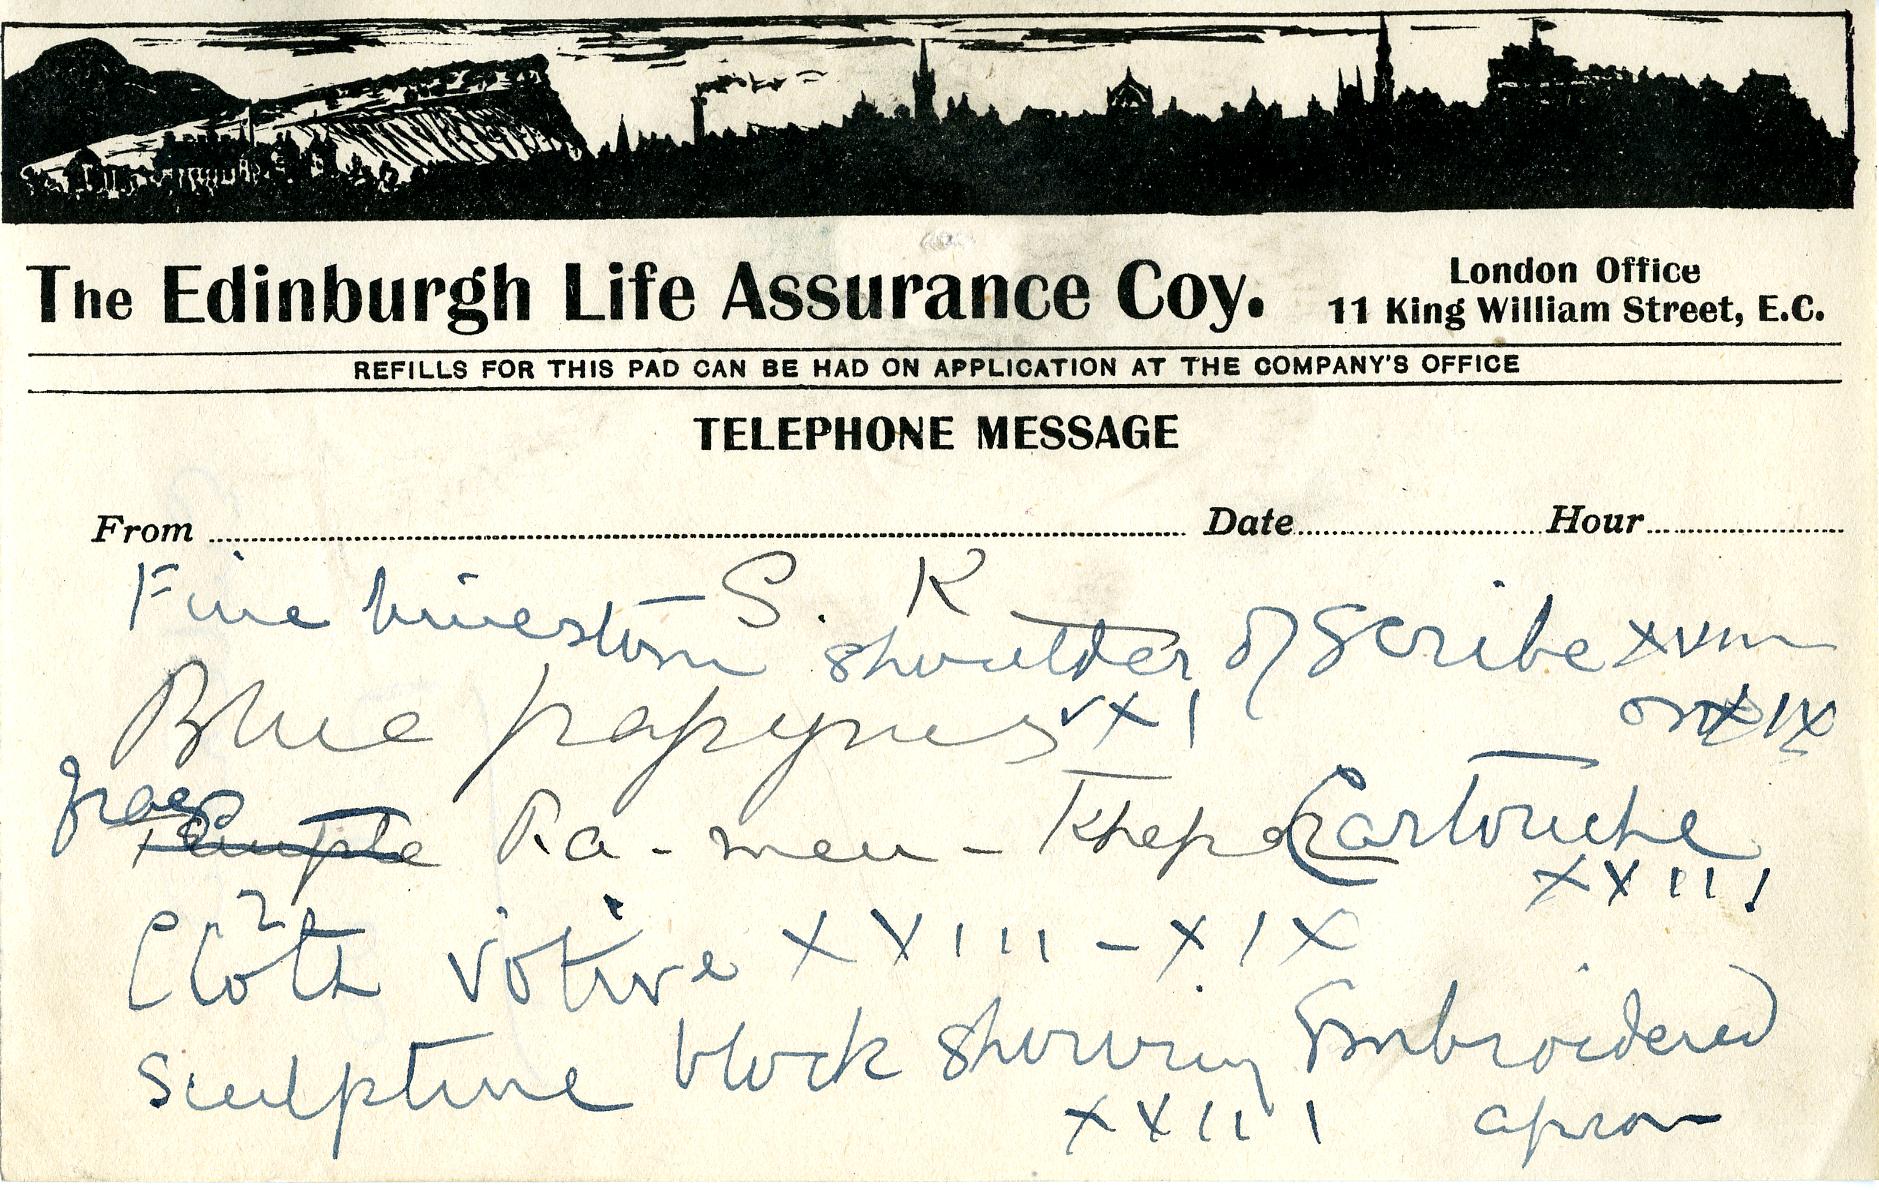 The Edinburgh Life Assurance Coy.
London Office
11 King William Street, E.C.
REFILLS FOR THIS PAD CAN BE HAD ON APPLICATION AT THE COMPANY'S OFFICE
TELEPHONE MESSAGE
From Date Hour
S. K
Fine limestone shoulder of Scribe XVIII
or XIX
Blue papyrus XI
frags
Temple Ra-men-Kheper Cartouche
XXIII
2
Cloth votive XVIII-XIX
Sculpture block showing Embroidered
XXIII apron